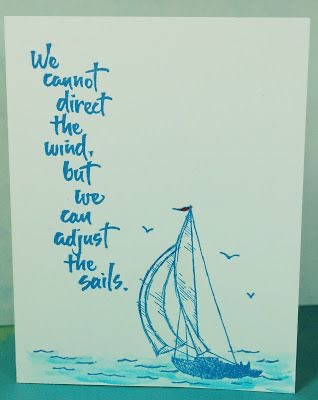 We
cannot
direct
the
wind,
but
we
can
adjust
the
sails.